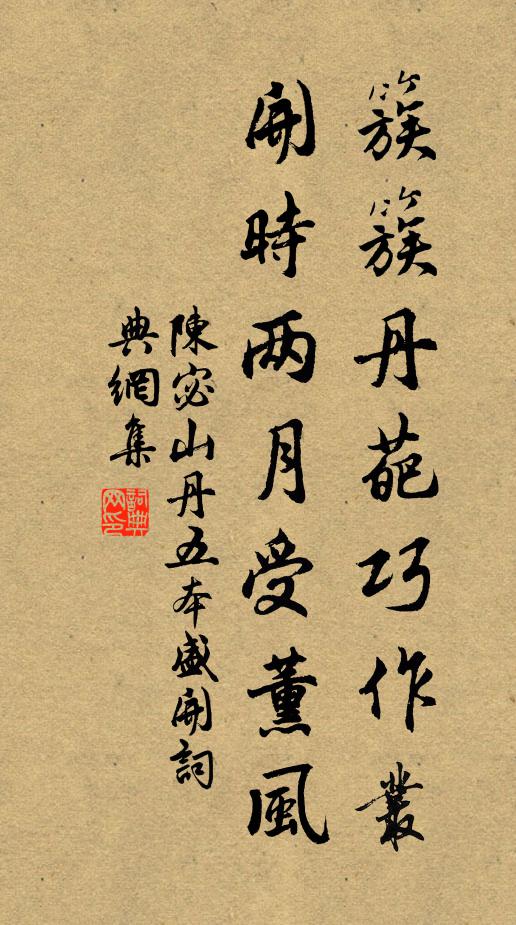 簇簇丹葩巧作叢
開時两月受薰風
陳宓山丹五本盛開詞
典網集
詞典网印